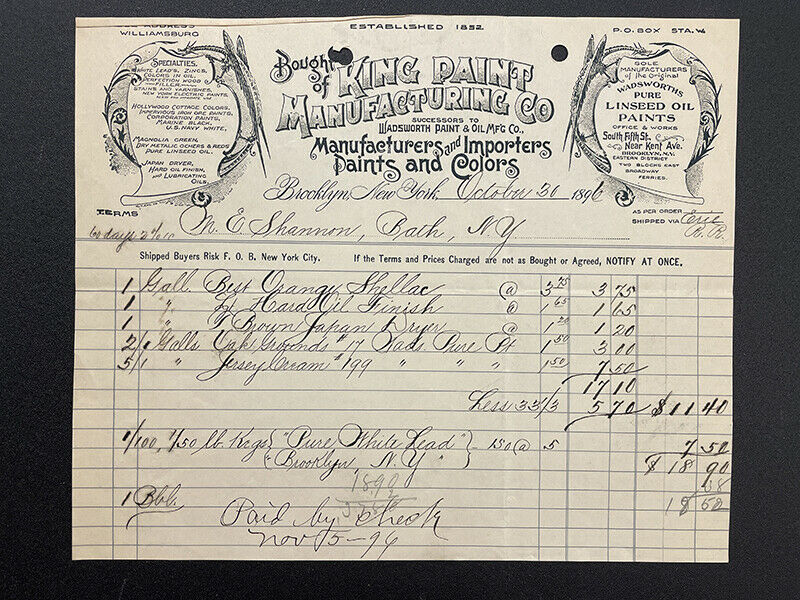 ADDRESS
WILLIAMSBURG
ESTABLISHED 1852
P.O. BOX STA. W.
SPECIALTIES.
WHITE LEADS, ZINCS,
COLORS IN OIL,
PERFECTION WOOD
FILLER,
STAINS AND VARNISHES,
NEW YORK ELECTRIC PAINTS,
HOLLYWOOD COTTAGE COLORS,
IMPERVIOUS IRON ORE PAINTS,
CORPORATION PAINTS,
MARINE BLACK,
U.S. NAVY WHITE,
MAGNOLIA GREEN,
DRY METALIC OCHERS & REDS
PURE LINSEED OIL.
JAPAN DRYER,
HARD OIL FINISH,
AND LUBRICATING
OILS.
Bought of KING PAINT
MANUFACTURING CO
SUCCESSORS TO
WADSWORTH PAINT & OIL M'F'G CO.,
Manufacturers and Importers
Paints and Colors
SOLE
MANUFACTURERS
of the Original
WADSWORTHS
PURE
LINSEED OIL
PAINTS
OFFICE & WORKS
South Fifth St.
Near Kent Ave.
BROOKLYN, N.Y.
EASTERN DISTRICT
TWO BLOCKS EAST
BROADWAY
FERRIES.
Brooklyn New York, October 30 1896
TERMS
60 days 2%
M. E. Shannon, Bath, N.Y
AS PER ORDER
SHIPPED VIA Erie
R. R.
Shipped Buyers Risk F. O. B. New York City. If the Terms and Prices Charged are not as Bought or Agreed, NOTIFY AT ONCE.
1 Gall Best Orange Shellac @ 3 75 3 75
1 " Hard Oil Finish @ 1 65 1 65
1 " Brown Japan Dryer @ 1 20 1 20
2/1 Galls Oak Grounds #17 Wads. Pure Pt 1 50 3 00
5/1 " Jersey Cream #199 " " " 1 50 7 50
17 10
Less 33/3 5 70 $11 40
1/100, 1/50 lb Kegs "Pure White Lead" 150 @ 5 7 50
"Brooklyn, N.Y" $18 90
18.90
38
18 50
1 Bbl.
Paid by check
Nov 5-96